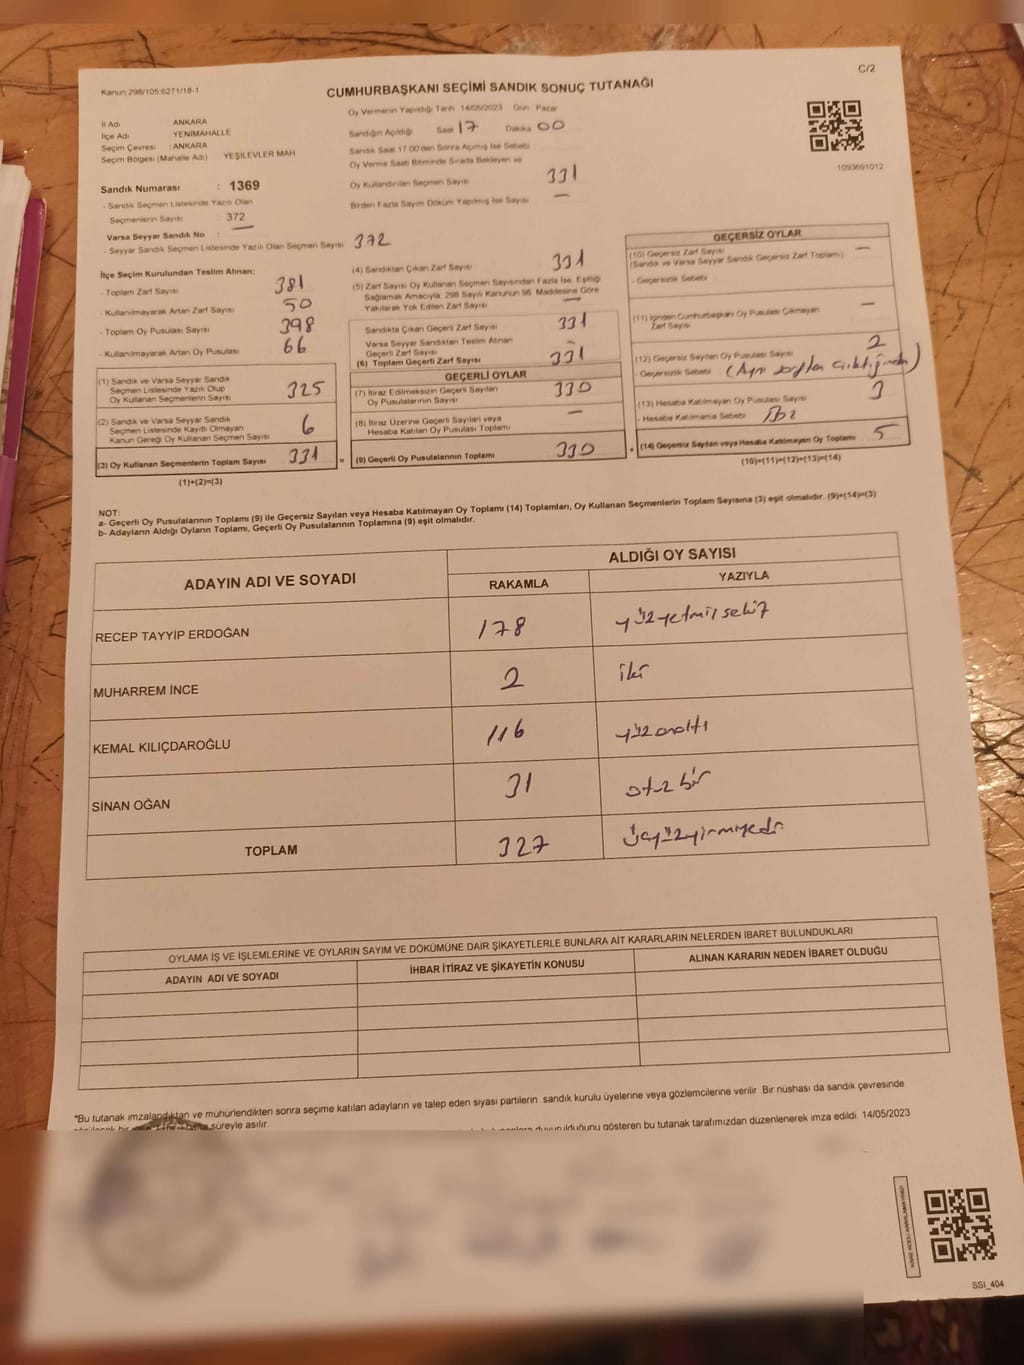 C/2
Kanun:298/105;6271/18-1
CUMHURBAŞKANI SEÇİMİ SANDIK SONUÇ TUTANAĞI
İl Adı ANKARA
İlçe Adı YENİMAHALLE
Seçim Çevresi : ANKARA
Seçim Bölgesi (Mahalle Adı) YEŞİLEVLER MAH
Sandık Numarası : 1369
- Sandık Seçmen Listesinde Yazılı Olan
Seçmenlerin Sayısı : 372
Varsa Seyyar Sandık No : —
- Seyyar Sandık Seçmen Listesinde Yazılı Olan Seçmen Sayısı 372
Oy Vermenin Yapıldığı Tarih 14/05/2023 Gün Pazar
Sandığın Açıldığı Saat 17 Dakika 00
Sandık Saat 17.00'den Sonra Açılmış İse Sebebi
Oy Verme Saati Bitiminde Sırada Bekleyen ve
Oy Kullandırılan Seçmen Sayısı 331
Birden Fazla Sayım Döküm Yapılmış İse Sayısı —
1093691012
İlçe Seçim Kurulundan Teslim Alınan;
- Toplam Zarf Sayısı 381
- Kullanılmayarak Artan Zarf Sayısı 50
- Toplam Oy Pusulası Sayısı 398
- Kullanılmayarak Artan Oy Pusulası 66
(1) Sandık ve Varsa Seyyar Sandık
Seçmen Listesinde Yazılı Olup
Oy Kullanan Seçmenlerin Sayısı 325
(2) Sandık ve Varsa Seyyar Sandık
Seçmen Listesinde Kayıtlı Olmayan
Kanun Gereği Oy Kullanan Seçmen Sayısı 6
(3) Oy Kullanan Seçmenlerin Toplam Sayısı 331
(1)+(2)=(3)
=
(4) Sandıktan Çıkan Zarf Sayısı 331
(5) Zarf Sayısı Oy Kullanan Seçmen Sayısından Fazla İse, Eşitliği
Sağlamak Amacıyla, 298 Sayılı Kanunun 98. Maddesine Göre
Yakılarak Yok Edilen Zarf Sayısı —
Sandıkta Çıkan Geçerli Zarf Sayısı 331
Varsa Seyyar Sandıktan Teslim Alınan
Geçerli Zarf Sayısı —
(6) Toplam Geçerli Zarf Sayısı 331
GEÇERLİ OYLAR
(7) İtiraz Edilmeksizin Geçerli Sayılan
Oy Pusulalarının Sayısı 330
(8) İtiraz Üzerine Geçerli Sayılan veya
Hesaba Katılan Oy Pusulası Toplamı —
(9) Geçerli Oy Pusulalarının Toplamı 330
+
GEÇERSİZ OYLAR
(10) Geçersiz Zarf Sayısı —
(Sandık ve Varsa Seyyar Sandık Geçersiz Zarf Toplamı)
- Geçersizlik Sebebi
(11) İçinden Cumhurbaşkanı Oy Pusulası Çıkmayan
Zarf Sayısı —
(12) Geçersiz Sayılan Oy Pusulası Sayısı 2
- Geçersizlik Sebebi (Aynı zarftan çıktığından)
(13) Hesaba Katılmayan Oy Pusulası Sayısı 3
- Hesaba Katılmama Sebebi
(14) Geçersiz Sayılan veya Hesaba Katılmayan Oy Toplamı 5
(10)+(11)+(12)+(13)=(14)
NOT:
a- Geçerli Oy Pusulalarının Toplamı (9) ile Geçersiz Sayılan veya Hesaba Katılmayan Oy Toplamı (14) Toplamları, Oy Kullanan Seçmenlerin Toplam Sayısına (3) eşit olmalıdır. (9)+(14)=(3)
b- Adayların Aldığı Oyların Toplamı, Geçerli Oy Pusulalarının Toplamına (9) eşit olmalıdır.
ADAYIN ADI VE SOYADI ALDIĞI OY SAYISI
RAKAMLA YAZIYLA
RECEP TAYYİP ERDOĞAN 178 yüzyetmişsekiz
MUHARREM İNCE 2 iki
KEMAL KILIÇDAROĞLU 116 yüzonaltı
SİNAN OĞAN 31 otuz bir
TOPLAM 327 üçyüzyirmiyedi
OYLAMA İŞ VE İŞLEMLERİNE VE OYLARIN SAYIM VE DÖKÜMÜNE DAİR ŞİKAYETLERLE BUNLARA AİT KARARLARIN NELERDEN İBARET BULUNDUKLARI
ADAYIN ADI VE SOYADI İHBAR İTİRAZ VE ŞİKAYETİN KONUSU ALINAN KARARIN NEDEN İBARET OLDUĞU
*Bu tutanak imzalandıktan ve mühürlendikten sonra seçime katılan adayların ve talep eden siyasi partilerin sandık kurulu üyelerine veya gözlemcilerine verilir. Bir nüshası da sandık çevresinde
süreyle asılır. duyurulduğunu gösteren bu tutanak tarafımızdan düzenlenerek imza edildi. 14/05/2023
SSI_404